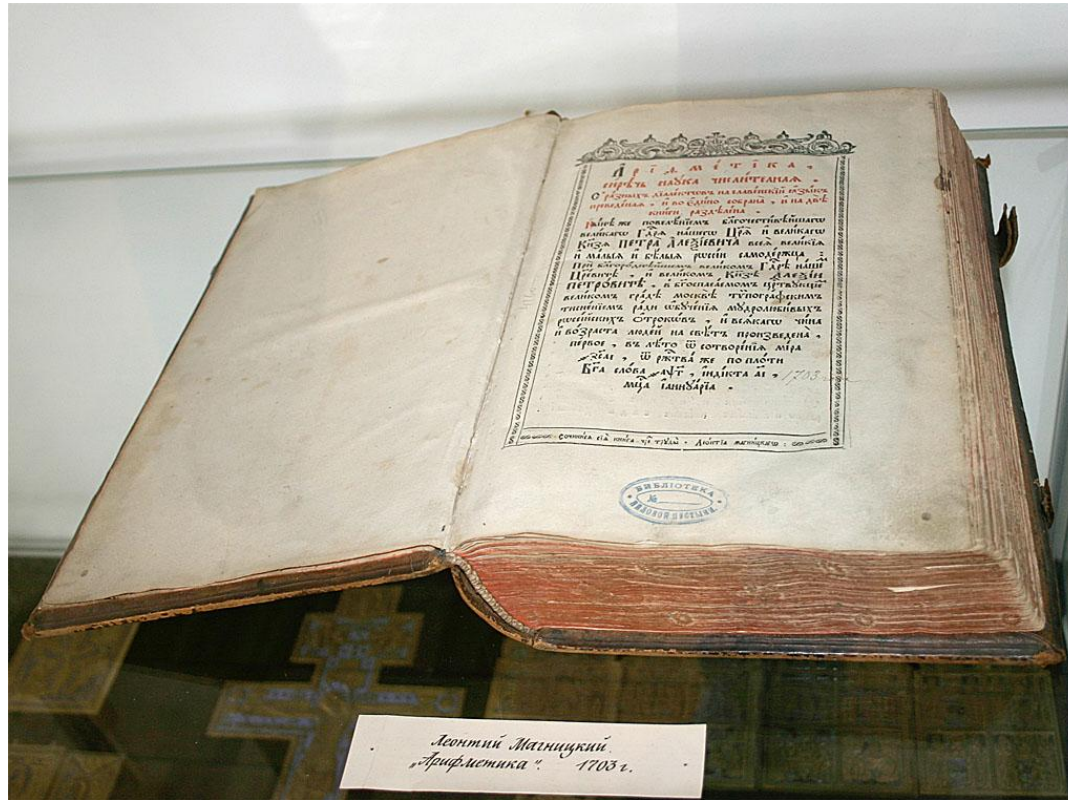 Арїѳме́тїка,
сирѣ́чь наука числи́телная.
С ра́зныхъ дїале́ктовъ на славе́нскїй ѧзы́къ
преведе́ная, и во еди́но собрана̀, и на двѣ̀
кни́ги раздѣле́на.
Ны́нѣ же повелѣ́нїемъ благочести́вѣйшагѡ
вели́кагѡ Гдⷭ҇рѧ на́шегѡ Цр҃ѧ̀ и вели́кагѡ
Кн҃зѧ ПЕТРА̀ АЛЕѮІ́ЕВИЧА всеѧ̀ вели́кїѧ
и ма́лыѧ и бѣ́лыѧ рѡссі́и самоде́ржца:
При благоро́днѣйшемъ вели́комъ Гдⷭ҇рѣ на́шемъ
Цр҃е́вичѣ, и вели́комъ Кн҃зѣ АЛЕѮІ́И
ПЕТРО́ВИЧѢ, в бг҃оспаса́емомъ црⷭ҇твующемъ
вели́комъ гра́дѣ москвѣ̀ тѵпогра́фскимъ
тисне́нїемъ ра́ди ѡбуче́нїѧ мудролюби́выхъ
рѡссі́йскихъ о́трокѡвъ, и всѧ́кагѡ чи́на
и во́зраста люде́й на свѣ́тъ произведена̀,
пе́рвое, въ лѣ́то ѿ сотворе́нїѧ мі́ра
҂зсаі, ѿ ржⷭ҇тва̀ же по пло́ти
Бг҃а сло́ва ҂аѱг, інді́кта аі, 1703
мцⷭ҇а іаннуа́рїа.
Сочини́сѧ сїѧ̀ кни́га чрез труды̀ Лео́нтїа магни́цкагѡ:
БИБЛІОТЕКА
Леонтий Магницкий.
„Арифметика". 1703 г.